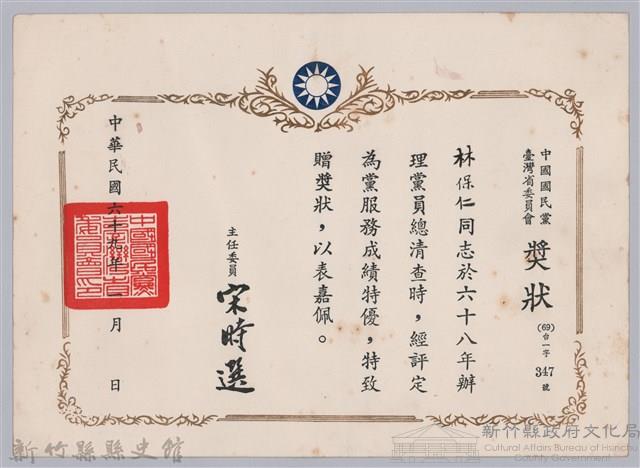 中國國民黨
臺灣省委員會
獎狀
(69)台一字347號
林保仁同志於六十八年辦
理黨員總清查時，經評定
為黨服務成績特優，特致
贈獎狀，以表嘉佩。
主任委員
宋時選
中華民國六十九年一月 日
新竹縣縣史館
新竹縣政府文化局
Cultural Affairs Bureau of Hsinchu
County Government